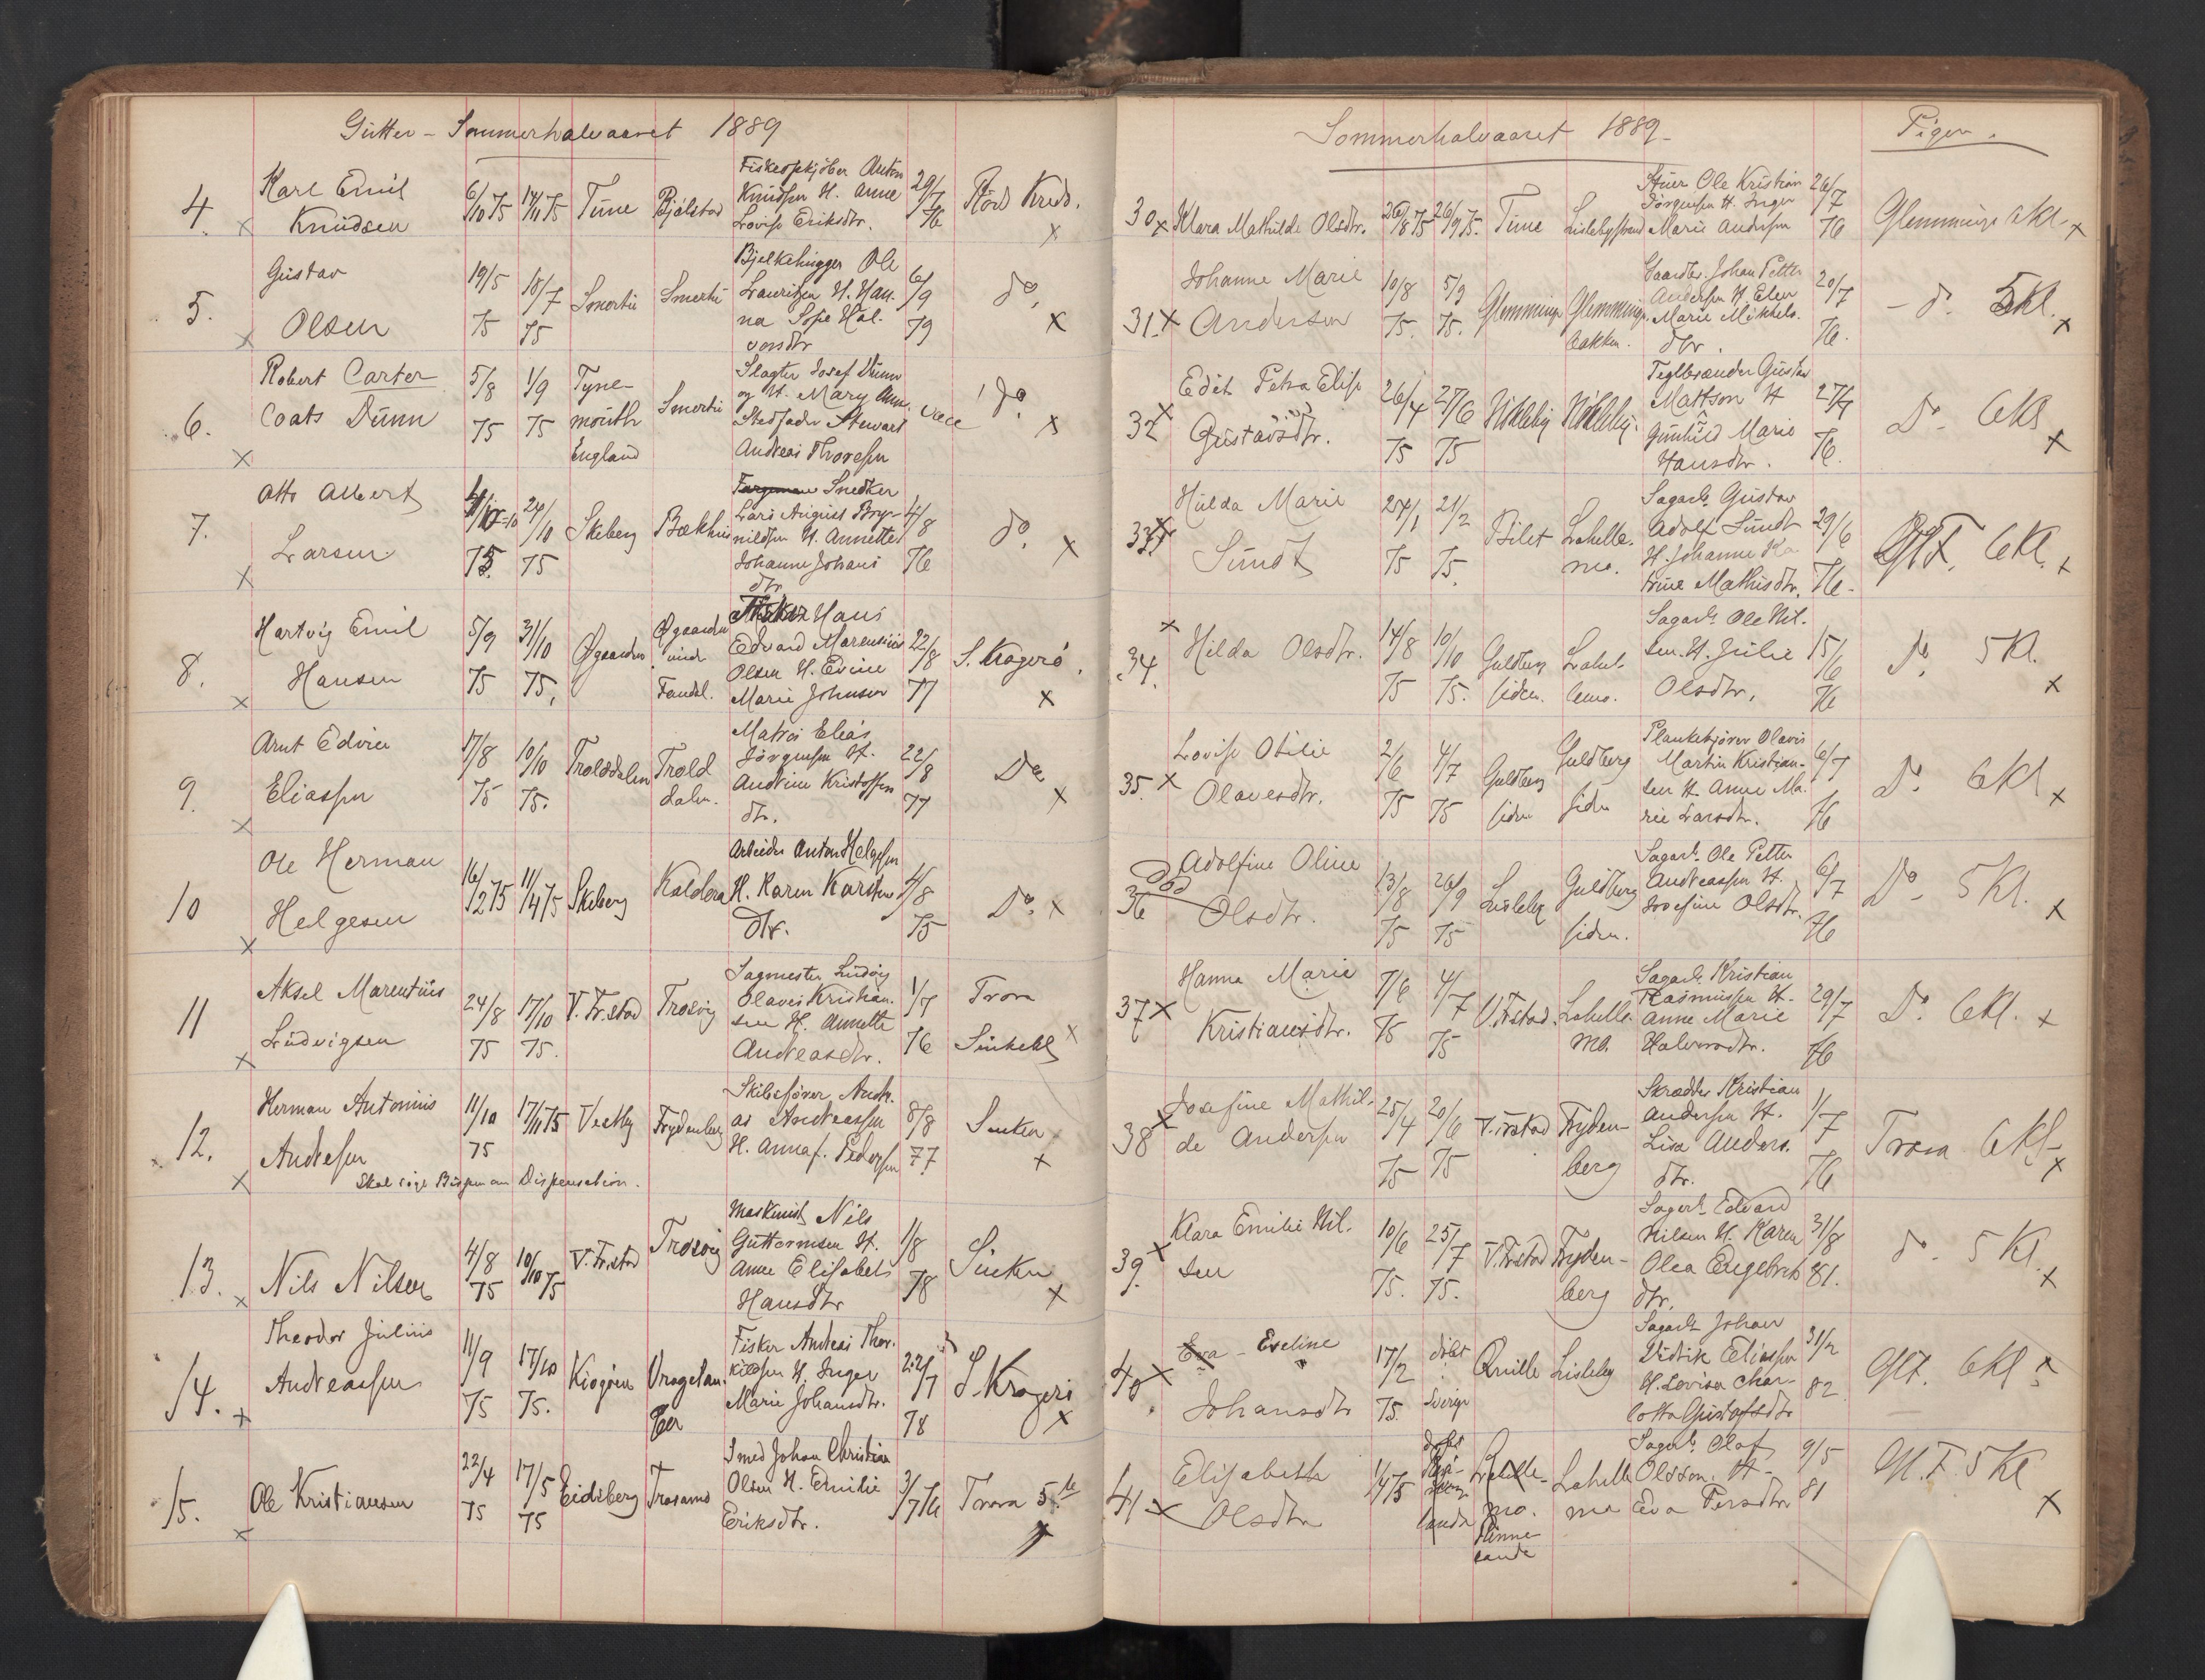 Gutter - Sommerhalvaaret 1889
4. x Karl Emil Knudsen 6/10 75 14/11 75 Tune Bjølstad Fiskeopkjøber Anton Knudsen H. Anne Lovise Eriksdtr. 29/7 76 Röds Kreds. x
5. x Gustav Olsen 19/5 75 18/7 75 Smertu Smertu Bjelkehugger Ole Lauritsen H. Hanna Sofie Halvorsdtr 6/9 79 do. x
6. x Robert Carter Coats Dunn 5/8 75 1/9 75 Tynemouth England Smertu Slagter Josef Dunn og H. Mary Ann. Stedfader Stewart Andreas Thoresen vacc do. x
7. x Otto Albert Larsen 75. 24/10 75 Skeberg Bækhus Snedker Lars August Brynildsen H. Annette Johanne Johans dtr 4/8 76 do. x
8. x Hartvig Emil Hansen 5/9 75 31/10 75. Øgaarden Øgaarden und. Hans Edvard Marensius Olsen H. Evine Marie Johnsen 22/8 77 S. Kragerö. x
9. x Arnt Edvin Eliassen 17/8 75 10/10 75. Trolddalen Trolddalen. Matros Elias Jörgensen H. Andrine Kristoffersdtr. 22/8 77 Do x
10 x Ole Herman Helgesen 16/2 75 11/4 75 Skeberg Kaldera Arbeider Anton Helgesen H. Karen Karlsens Dtr. 4/8 75 Do. x
11 x Aksel Marentius Ludvigsen 24/8 75 17/10 75. V. Fr.stad Trosvig Sagmester Ludvig Olaves Kristiansen H. Annette Andreasdtr. 1/7 76 Trara x
12. x Herman Antonius Andresen 11/10 75 17/11 75 Veelby Frydenberg Skibsfører Andreas Andreassen H. Anna J. Pedersen 8/8 77 x
Skal søge Bispen om Dispensation.
13. x Nils Nilsen 4/8 75 10/10 75 V. Fr.stad Trosvig Maskinist Nils Guttormsen H. Anne Elisabet Hansdtr 1/8 78 x
14. x Theodor Julius Andreassen 11/9 75 17/10 75. Kiøgøen Fisker Andreas Thorkildsen H. Inger Marie Johansdtr. 22/7 78 S. Kragerö x
15. x Ole Kristiansen 22/4 75 17/5 75 Eidsberg Trosamo Smed Johan Christian Olsen H. Emilie Eriksdtr. 3/7 76 Trara 5te x
Sommerhalvaaret 1889 - Piger.
30 x Klara Mathilde Olsdtr. 26/8 75 26/9 75. Tune Lislebystrand Stuer Ole Kristian Jörgensen H. Inger Marie Andersen 26/7 76 Glemminge 6kl. x
31. x Johanne Marie Andersen 10/8 75. 5/9 75. Glemminge Glemminge bakken. Gaardbr. Johan Petter Andersen H. Elen Marie Mikkelsdtr. 20/7 76. - do. 5Kl. x
32 x Edit Petra Elise Gustavsdtr. 26/4 75 27/6 75 Nökleby Nökleby. Teglbrænder Gustav Mattson H Gunhild Marie Hansdtr. 27/7 76. Do. 6Kl x
33 x Hulda Marie Sundt 24/1 75 21/2 75. Bilet Lahellemo. Sagarb. Gustav Adolf Sundt H. Johanne Katrine Mathisdtr. 29/6 76. Gl.F. 6Kl. x
34. x Hilda Olsdtr. 14/8 75 10/10 75. Guldbergsiden. Lahellemo. Sagarb. Ole Nilsen. H. Julie Olsdtr. 15/6 76 Do. 5Kl. x
35. x Lovise Otilie Olavesdtr. 2/6 75 4/7 75 Guldbergsiden Guldbergsiden Plankekjører Olavis Martin Kristiansen H. Anne Marie Larsdtr. 6/7 76 Do. 6Kl x
36 Död Adolfine Oline Olsdtr. 13/8 75 26/9 75 Lisleby Guldbergsiden. Sagarb. Ole Petter Andreassen H. Josefine Olsdtr. 6/7 76 Do. 5Kl. x
37 x Hanna Marie Kristiansdtr. 7/6 75 4/7 75 V. Frstad. Lahellemo. Sagarb. Kristian Rasmussen H. Anne Marie Halvorsdtr. 29/7 76 Do. 6Kl. x
38 x Josefine Mathilde Andersen 25/4 75 20/6 75 V. Frstad Frydenberg Skrædder Kristian Andersen H. Lisa Andersdtr. 1/7 76 Trara 6Kl. x
39. x Klara Emilie Nilsen 10/6 75. 25/7 75. V. Frstad Frydenberg Sagarb. Edvard Nilsen H. Karen Olea Engebretsdtr. 31/8 81. do. 5Kl. x
40. x Eva - Eveline Johansdtr 17/2 75. döbt Sverge Qville Lisleby Sagarb. Johan Didrik Eliassen H. Lovisa Charlotta Gustafsdtr 31/2 82 Gl.F. 6Kl x
41 x Elisabeth Olsdtr 1/4 75 Lahellemo. Lahellemo Sagarb. Olaf Olsson. H. Eva Persdtr 9/5 81 Gl.F. 5Kl x